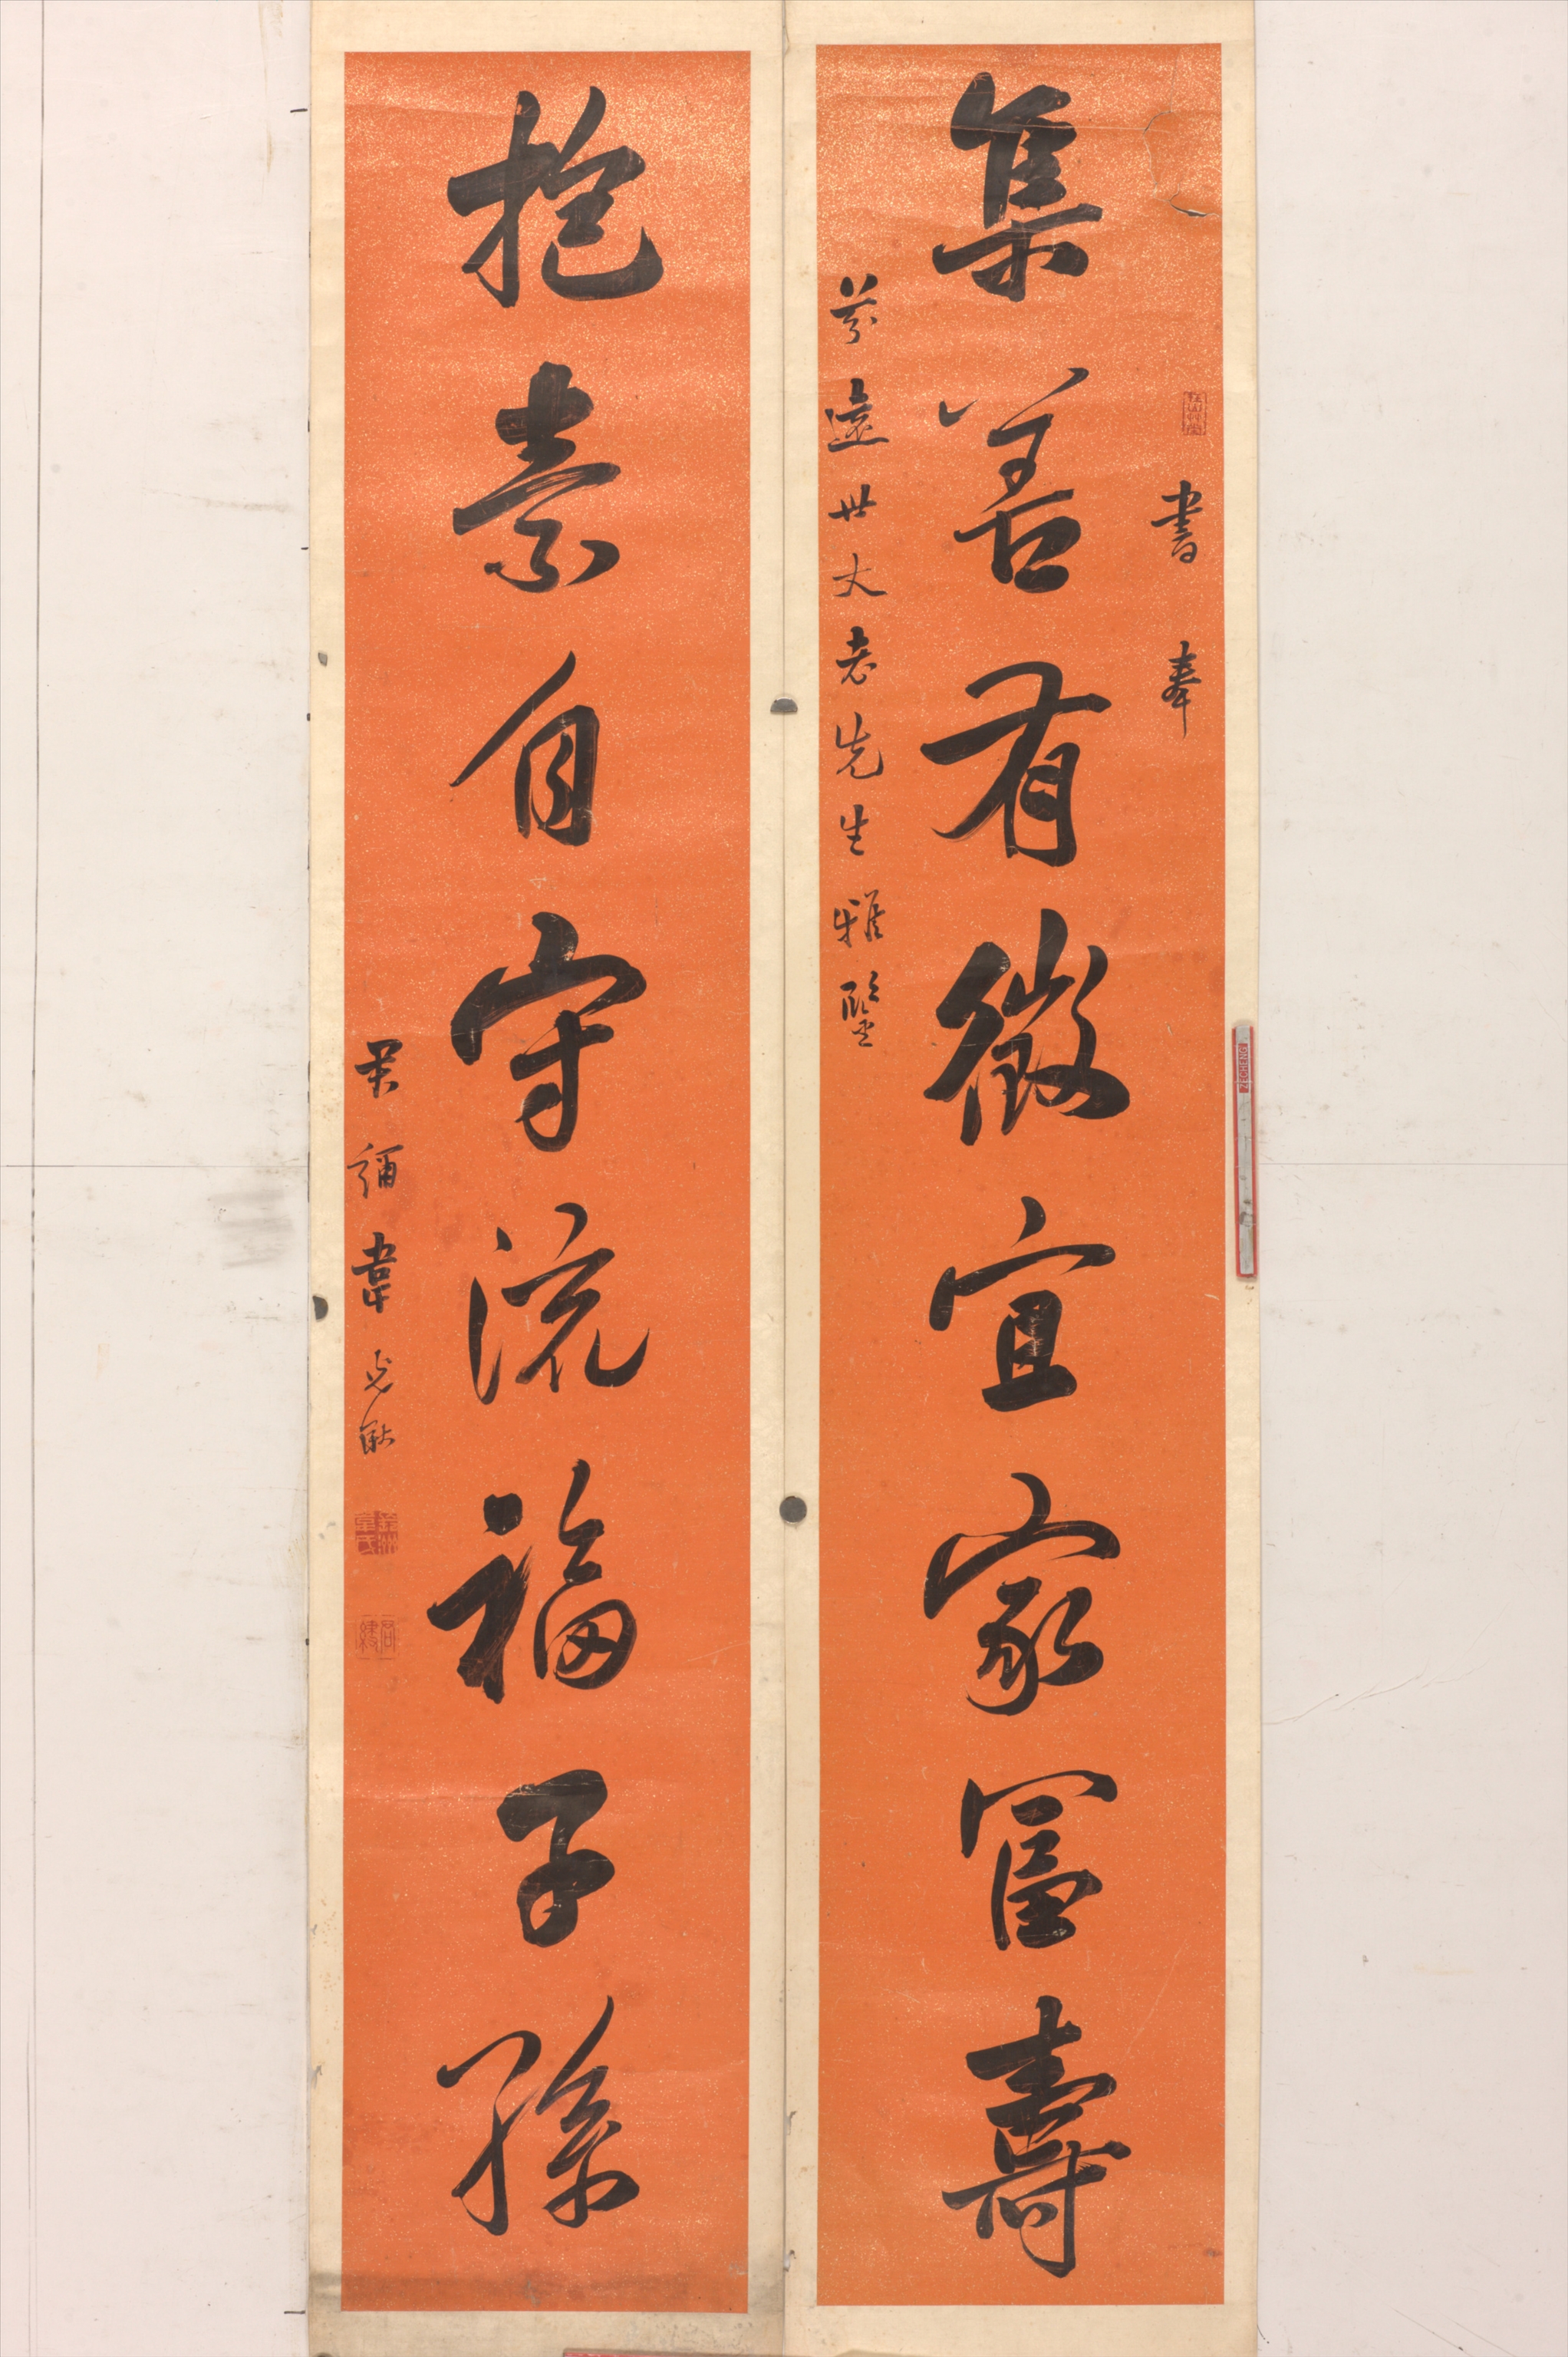 書奉
集善有徵宜家富壽
芬遠世丈老先生雅鑒
抱素自守流福子孫
韋光黻